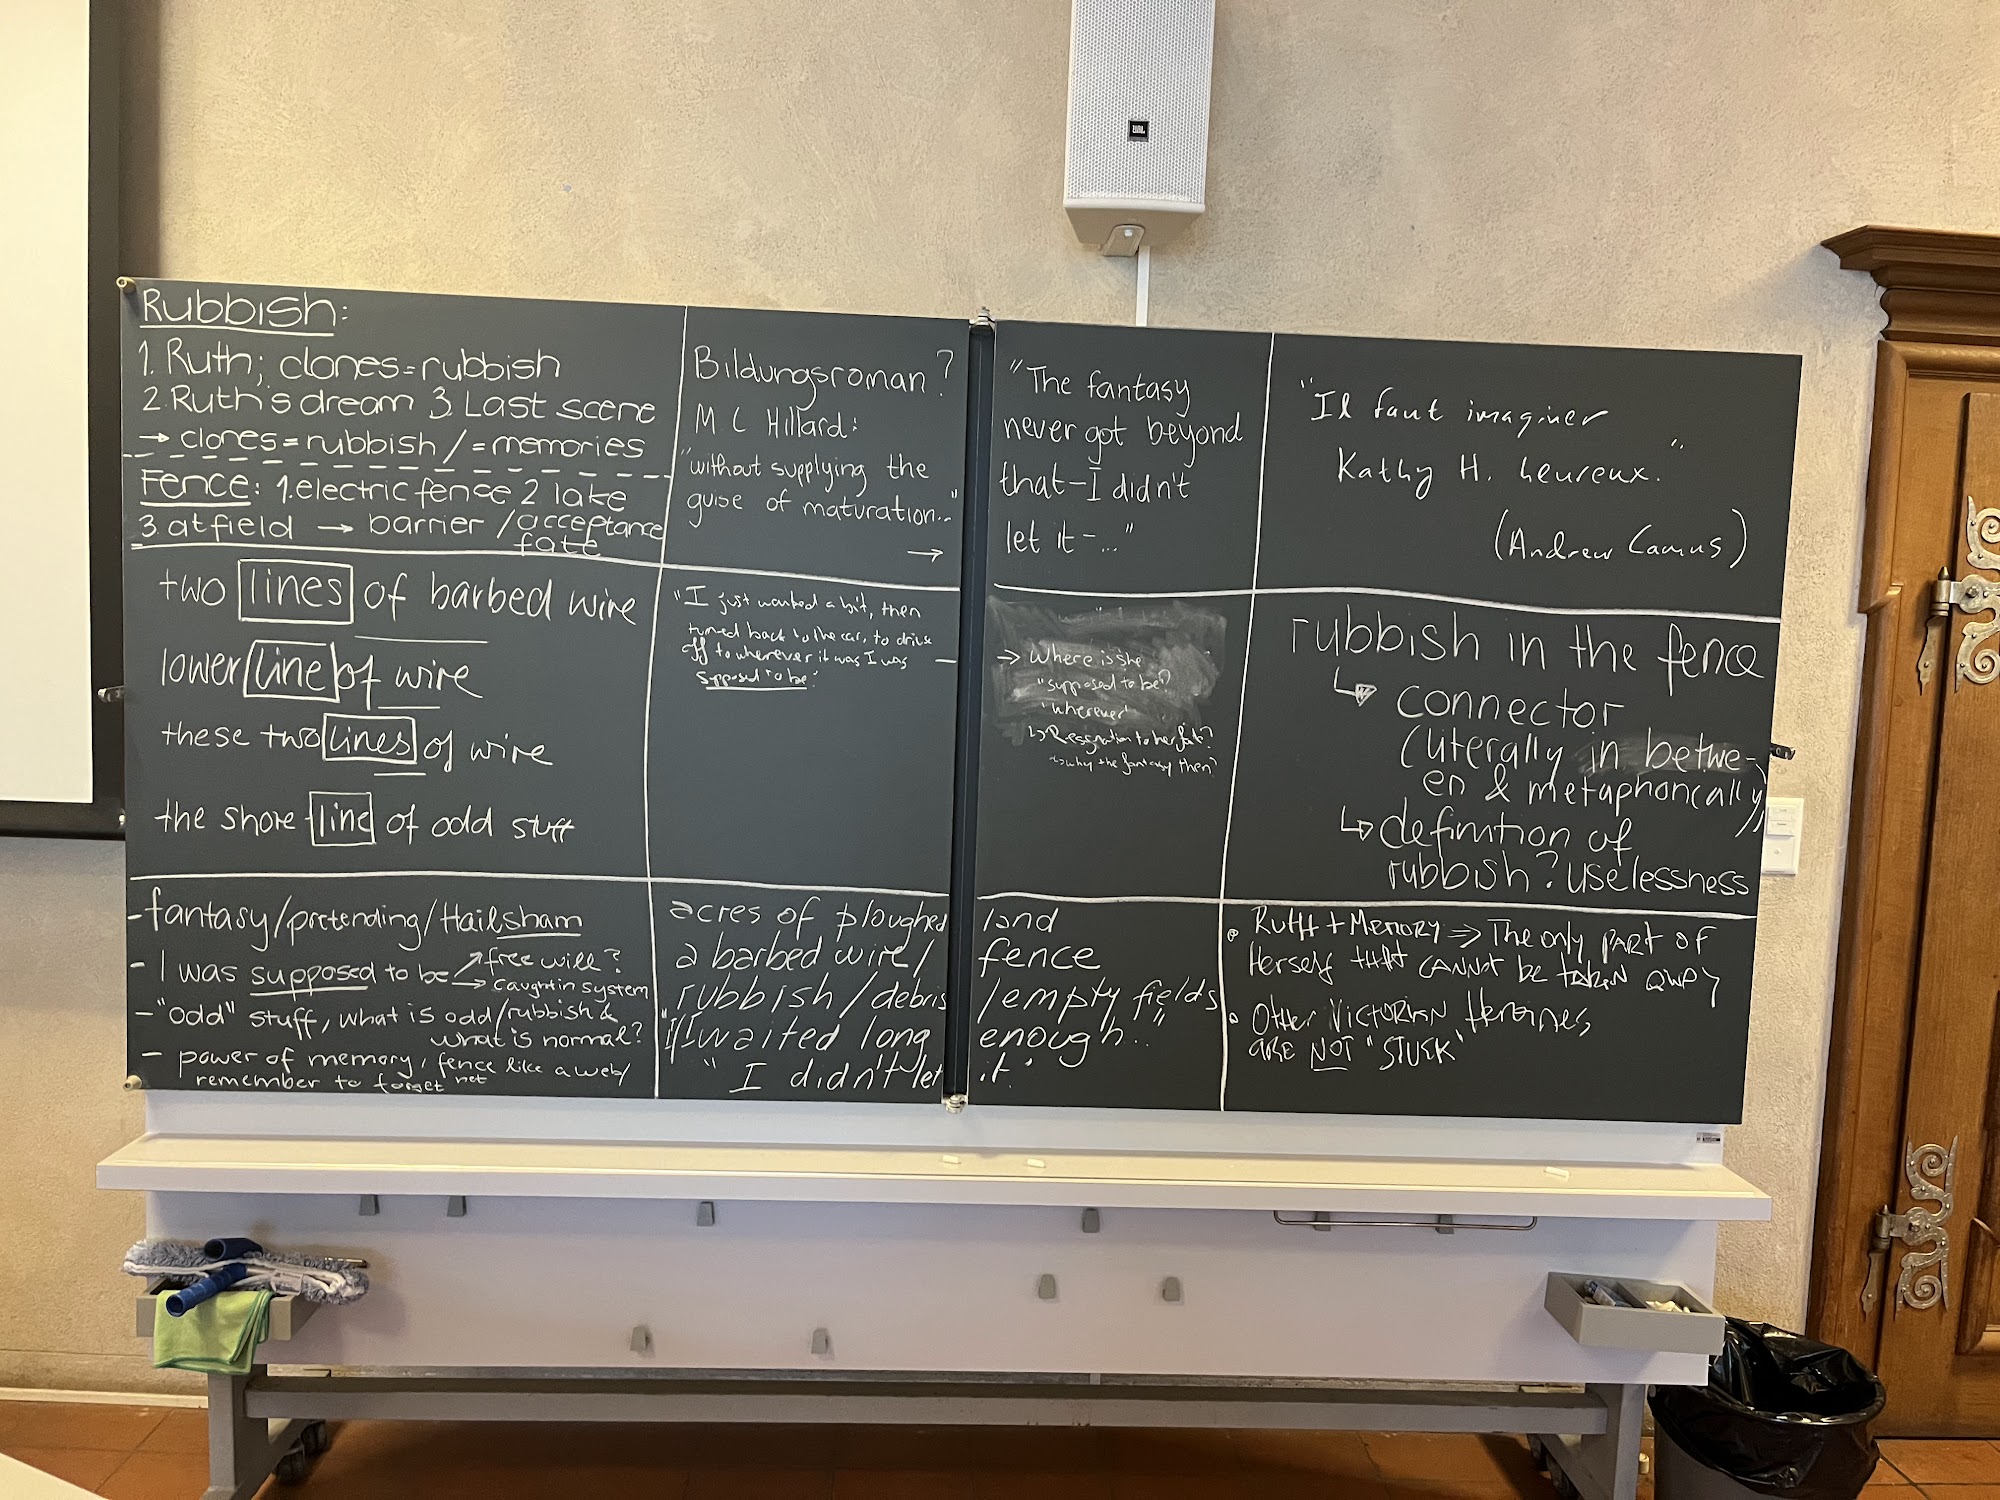 JBL
Rubbish:
1. Ruth; clones=rubbish
2. Ruth's dream 3. Last scene
→ clones=rubbish/=memories
Fence: 1. electric fence 2 lake
3. at field → barrier /acceptance
fate
Bildungsroman?
M C Hillard:
"without supplying the
guise of maturation..."
→
"The fantasy
never got beyond
that—I didn't
let it—..."
"Il faut imaginer
Kathy H. heureux."
(Andrew Camus)
two lines of barbed wire
lower line of wire
these two lines of wire
the shore-line of odd stuff
"I just waited a bit, then
turned back to the car, to drive
off to wherever it was I was
supposed to be."
→ Where is she
"supposed to be"?
"wherever"
↳ Resignation to her fate?
↳ why the fantasy then?
rubbish in the fence
↳ connector
(literally in betwe-
en & metaphorically)
↳ definition of
rubbish? uselessness
- fantasy/pretending/Hailsham
- I was supposed to be ↗ free will?
→ caught in system
- "odd" stuff, what is odd/rubbish &
what is normal?
- power of memory, fence like a web/
net
remember to forget
acres of ploughed land
a barbed wire/ fence
rubbish/debris /empty fields
"If I waited long enough.."
"I didn't let it."
• Ruth + Memory ⇒ The only part of
Herself that cannot be taken away
• Other Victorian Heroines
are NOT "STUCK"